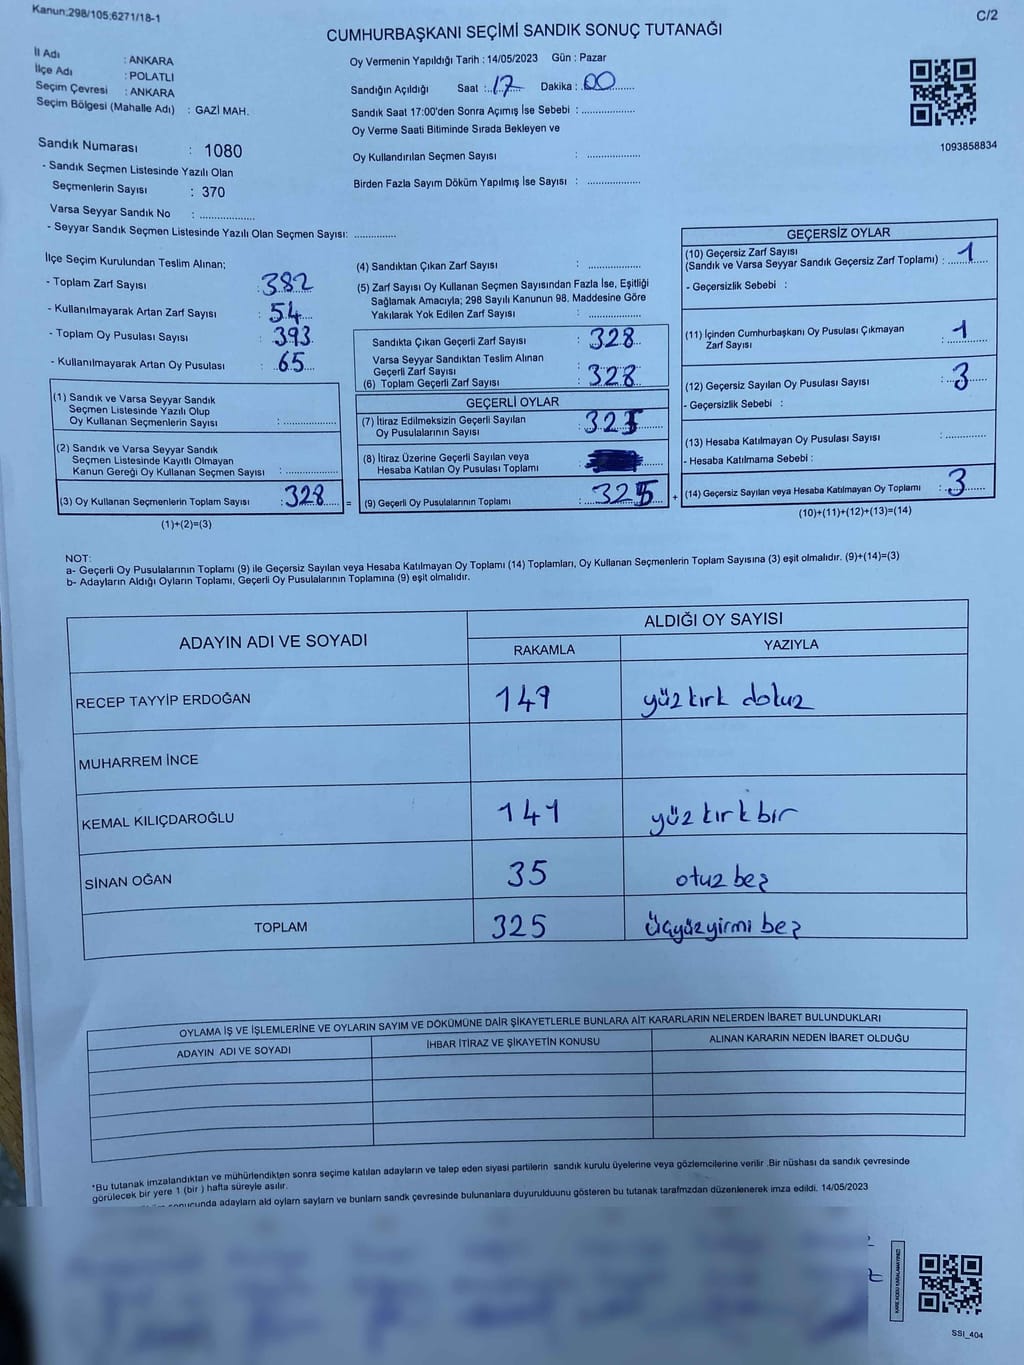 Kanun:298/105;6271/18-1
C/2
CUMHURBAŞKANI SEÇİMİ SANDIK SONUÇ TUTANAĞI
İl Adı : ANKARA
İlçe Adı : POLATLI
Seçim Çevresi : ANKARA
Seçim Bölgesi (Mahalle Adı) : GAZİ MAH.
Oy Vermenin Yapıldığı Tarih : 14/05/2023 Gün : Pazar
Sandığın Açıldığı Saat :..17.... Dakika : .00.......
Sandık Saat 17:00'den Sonra Açımış İse Sebebi : ..................
Oy Verme Saati Bitiminde Sırada Bekleyen ve
Oy Kullandırılan Seçmen Sayısı : ..................
Birden Fazla Sayım Döküm Yapılmış İse Sayısı : ..................
1093858834
Sandık Numarası : 1080
- Sandık Seçmen Listesinde Yazılı Olan
Seçmenlerin Sayısı : 370
Varsa Seyyar Sandık No : ..................
- Seyyar Sandık Seçmen Listesinde Yazılı Olan Seçmen Sayısı: ..............
İlçe Seçim Kurulundan Teslim Alınan;
- Toplam Zarf Sayısı : 382
- Kullanılmayarak Artan Zarf Sayısı : 54
- Toplam Oy Pusulası Sayısı : 393
- Kullanılmayarak Artan Oy Pusulası : 65
(1) Sandık ve Varsa Seyyar Sandık
Seçmen Listesinde Yazılı Olup
Oy Kullanan Seçmenlerin Sayısı : ..................
(2) Sandık ve Varsa Seyyar Sandık
Seçmen Listesinde Kayıtlı Olmayan
Kanun Gereği Oy Kullanan Seçmen Sayısı : ..................
(3) Oy Kullanan Seçmenlerin Toplam Sayısı : 328 =
(1)+(2)=(3)
(4) Sandıktan Çıkan Zarf Sayısı : ..................
(5) Zarf Sayısı Oy Kullanan Seçmen Sayısından Fazla İse, Eşitliği
Sağlamak Amacıyla; 298 Sayılı Kanunun 98. Maddesine Göre
Yakılarak Yok Edilen Zarf Sayısı : ..................
Sandıkta Çıkan Geçerli Zarf Sayısı : 328
Varsa Seyyar Sandıktan Teslim Alınan
Geçerli Zarf Sayısı
(6) Toplam Geçerli Zarf Sayısı : 328
GEÇERLİ OYLAR
(7) İtiraz Edilmeksizin Geçerli Sayılan
Oy Pusulalarının Sayısı : 325
(8) İtiraz Üzerine Geçerli Sayılan veya
Hesaba Katılan Oy Pusulası Toplamı :
(9) Geçerli Oy Pusulalarının Toplamı : 325 +
GEÇERSİZ OYLAR
(10) Geçersiz Zarf Sayısı
(Sandık ve Varsa Seyyar Sandık Geçersiz Zarf Toplamı) : 1
- Geçersizlik Sebebi :
(11) İçinden Cumhurbaşkanı Oy Pusulası Çıkmayan
Zarf Sayısı : 1
(12) Geçersiz Sayılan Oy Pusulası Sayısı : 3
- Geçersizlik Sebebi :
(13) Hesaba Katılmayan Oy Pusulası Sayısı : ..............
- Hesaba Katılmama Sebebi :
(14) Geçersiz Sayılan veya Hesaba Katılmayan Oy Toplamı : 3
(10)+(11)+(12)+(13)=(14)
NOT:
a- Geçerli Oy Pusulalarının Toplamı (9) ile Geçersiz Sayılan veya Hesaba Katılmayan Oy Toplamı (14) Toplamları, Oy Kullanan Seçmenlerin Toplam Sayısına (3) eşit olmalıdır. (9)+(14)=(3)
b- Adayların Aldığı Oyların Toplamı, Geçerli Oy Pusulalarının Toplamına (9) eşit olmalıdır.
ADAYIN ADI VE SOYADI
ALDIĞI OY SAYISI
RAKAMLA YAZIYLA
RECEP TAYYİP ERDOĞAN 149 yüz kırk dokuz
MUHARREM İNCE
KEMAL KILIÇDAROĞLU 141 yüz kırk bir
SİNAN OĞAN 35 otuz beş
TOPLAM 325 üçyüzyirmi beş
OYLAMA İŞ VE İŞLEMLERİNE VE OYLARIN SAYIM VE DÖKÜMÜNE DAİR ŞİKAYETLERLE BUNLARA AİT KARARLARIN NELERDEN İBARET BULUNDUKLARI
ADAYIN ADI VE SOYADI İHBAR İTİRAZ VE ŞİKAYETİN KONUSU ALINAN KARARIN NEDEN İBARET OLDUĞU
*Bu tutanak imzalandıktan ve mühürlendikten sonra seçime katılan adayların ve talep eden siyasi partilerin sandık kurulu üyelerine veya gözlemcilerine verilir .Bir nüshası da sandık çevresinde
görülecek bir yere 1 (bir ) hafta süreyle asılır.
sonucunda adayların ald oyların sayların ve bunların sandk çevresinde bulunanlara duyurulduunu gösteren bu tutanak tarafmzdan düzenlenerek imza edildi. 14/05/2023
SSI_404